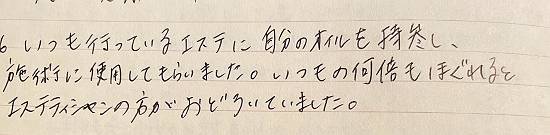 6 いつも行っているエステに自分のオイルを持参し、
施術に使用してもらいました。いつもの何倍もほぐれると
エステティシャンの方がおどろいていました。